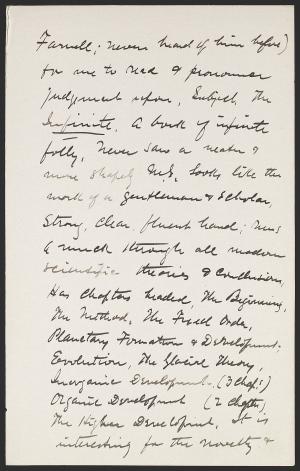 Farnell; never heard of him before)
for me to read & pronounce
judgment upon, Subject, The
Infinite, A book of infinite
folly, Never saw a neater &
more shapely MS, looks like the
work of a gentleman & scholar,
Strong, clear, fluent hand; runs
a muck through all modern
scientific theories & conclusions,
Has Chapters headed, The Beginning,
The Method, The Fixed Order,
Planetary Formation & Development
Evolution, The Glacial Theory,
Inorganic Development (3 Chap.s)
Organic Development (2 Chapters)
The Higher Development, It is
interesting for the novelty &